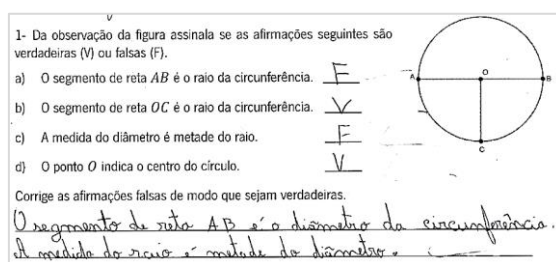 1- Da observação da figura assinala se as afirmações seguintes são
verdadeiras (V) ou falsas (F).
a) O segmento de reta AB é o raio da circunferência. F
b) O segmento de reta OC é o raio da circunferência. V
c) A medida do diâmetro é metade do raio. F
d) O ponto O indica o centro do círculo. V
A
O
B
C
Corrige as afirmações falsas de modo que sejam verdadeiras.
O segmento de reta AB é o diâmetro da circunferência.
A medida do raio é metade do diâmetro.